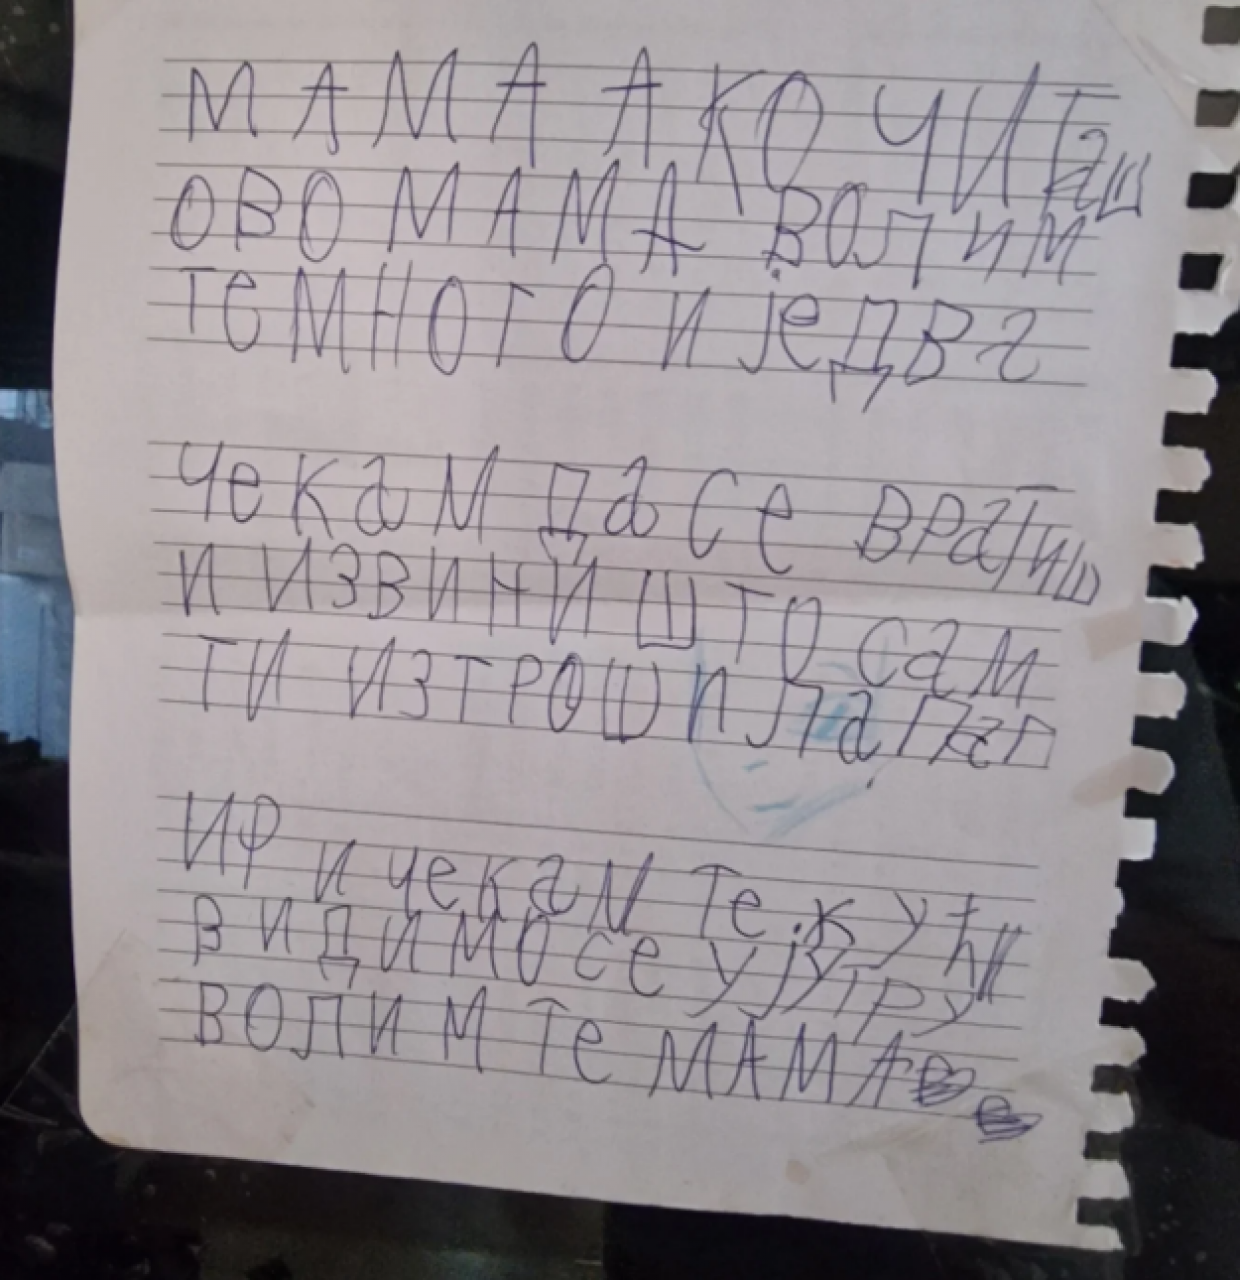 МАМА АКО ЧИТаш
ОВО МАМА ВОЛИМ
ТЕ МНОГО И јеДВа
чекам да се вратиш
И ИЗВИНИ ШТО сам
ТИ ИЗТРОШИЛа Пап
ИР и чекам Те. кући
видимо се ујутру
ВОЛИМ Те МАМА